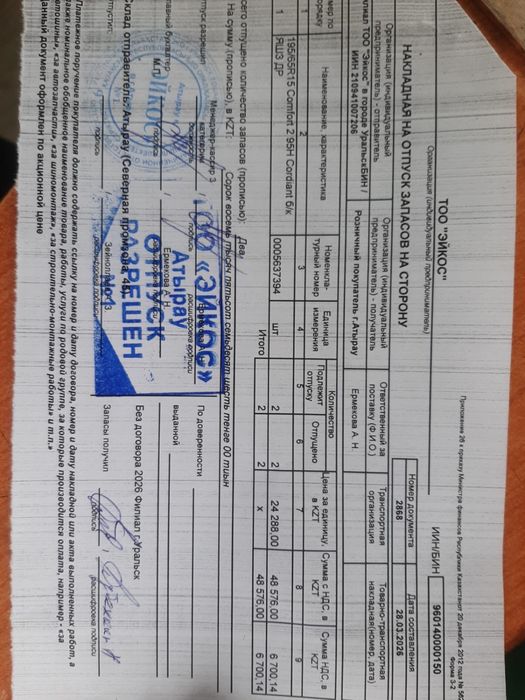 Приложение 26 к приказу Министра финансов Республики Казахстан от 20 декабря 2012 года № 562
Форма З-2
ТОО "ЭЙКОС"
Организация (индивидуальный предприниматель)
ИИН/БИН 960140000150
НАКЛАДНАЯ НА ОТПУСК ЗАПАСОВ НА СТОРОНУ
Номер документа Дата составления
2868 28.03.2026
Организация (индивидуальный предприниматель) - отправитель
Организация (индивидуальный предприниматель) - получатель
Ответственный за поставку (Ф.И.О.)
Транспортная организация
Товарно-транспортная накладная(номер, дата)
ТОО "Эйкос" в городе УральскБИН / ИИН 210541007206
Розничный покупатель г.Атырау
Ермекова А. Н.
Наименование, характеристика
Номенклатурный номер
Единица измерения
Количество
Подлежит отпуску
Отпущено
Цена за единицу в KZT
Сумма с НДС, в KZT
Сумма НДС, в KZT
1 2 3 4 5 6 7 8 9
1 195/65R15 Comfort 2 95H Cordiant б/к ЯШЗ ДР 0005637394 шт 2 2 24 288,00 48 576,00 6 700,14
Итого 2 2 x 48 576,00 6 700,14
Всего отпущено количество запасов (прописью) Два
На сумму (прописью), в KZT: Сорок восемь тысяч пятьсот семьдесят шесть тенге 00 тиын
Отпуск разрешил
Менеджер-кассир 3 категории
должность
подпись
расшифровка подписи
По доверенности
Главный бухгалтер
подпись
Ермекова А.
расшифровка подписи
выданной
М.П.
ТОО «ЭЙКОС»
Атырау
ОТПУСК
РАЗРЕШЕН
Без договора 2026 Филиал г.Уральск
Склад отправитель: Атырау (Северная промзона, 45)
Отпустил:
подпись
расшифровка подписи
Запасы получил
подпись
расшифровка подписи
Платежное поручение покупателя должно содержать ссылку на номер и дату договора, номер и дату накладной или акта выполненных работ, а также номинальное обобщенное наименование товара, работы, услуги по родовой группе, за которые производится оплата, например - «за автошины», «за автозапчасти», «за шиномонтаж», «за строительно-монтажные работы» и т.п.»
Данный документ оформлен по акционной цене